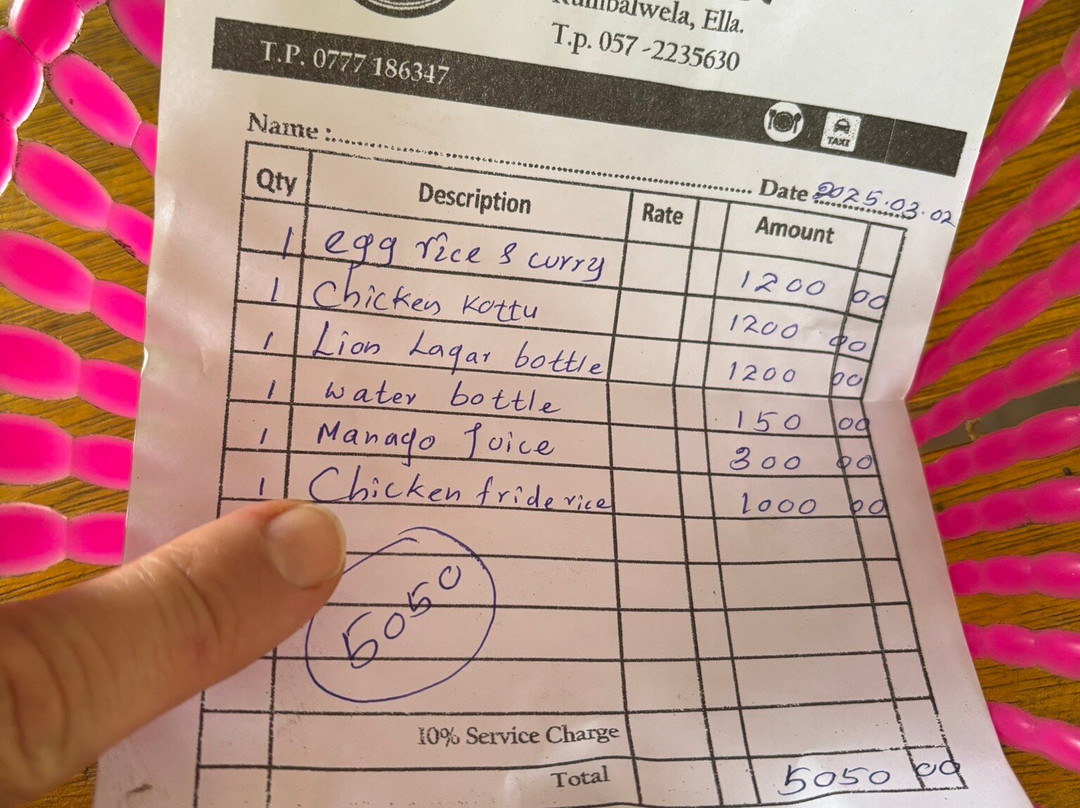 Kumbalwela, Ella.
T.p. 057-2235630
T.P. 0777 186347
TAXI
Name :.......... Date 2025.03.02
Qty Description Rate Amount
1 egg rice & curry 1200 00
1 Chicken Kottu 1200 00
1 Lion Lagar bottle 1200 00
1 water bottle 150 00
1 Manago Juice 300 00
1 Chicken fride rice 1000 00
5050
10% Service Charge
Total 5050 00